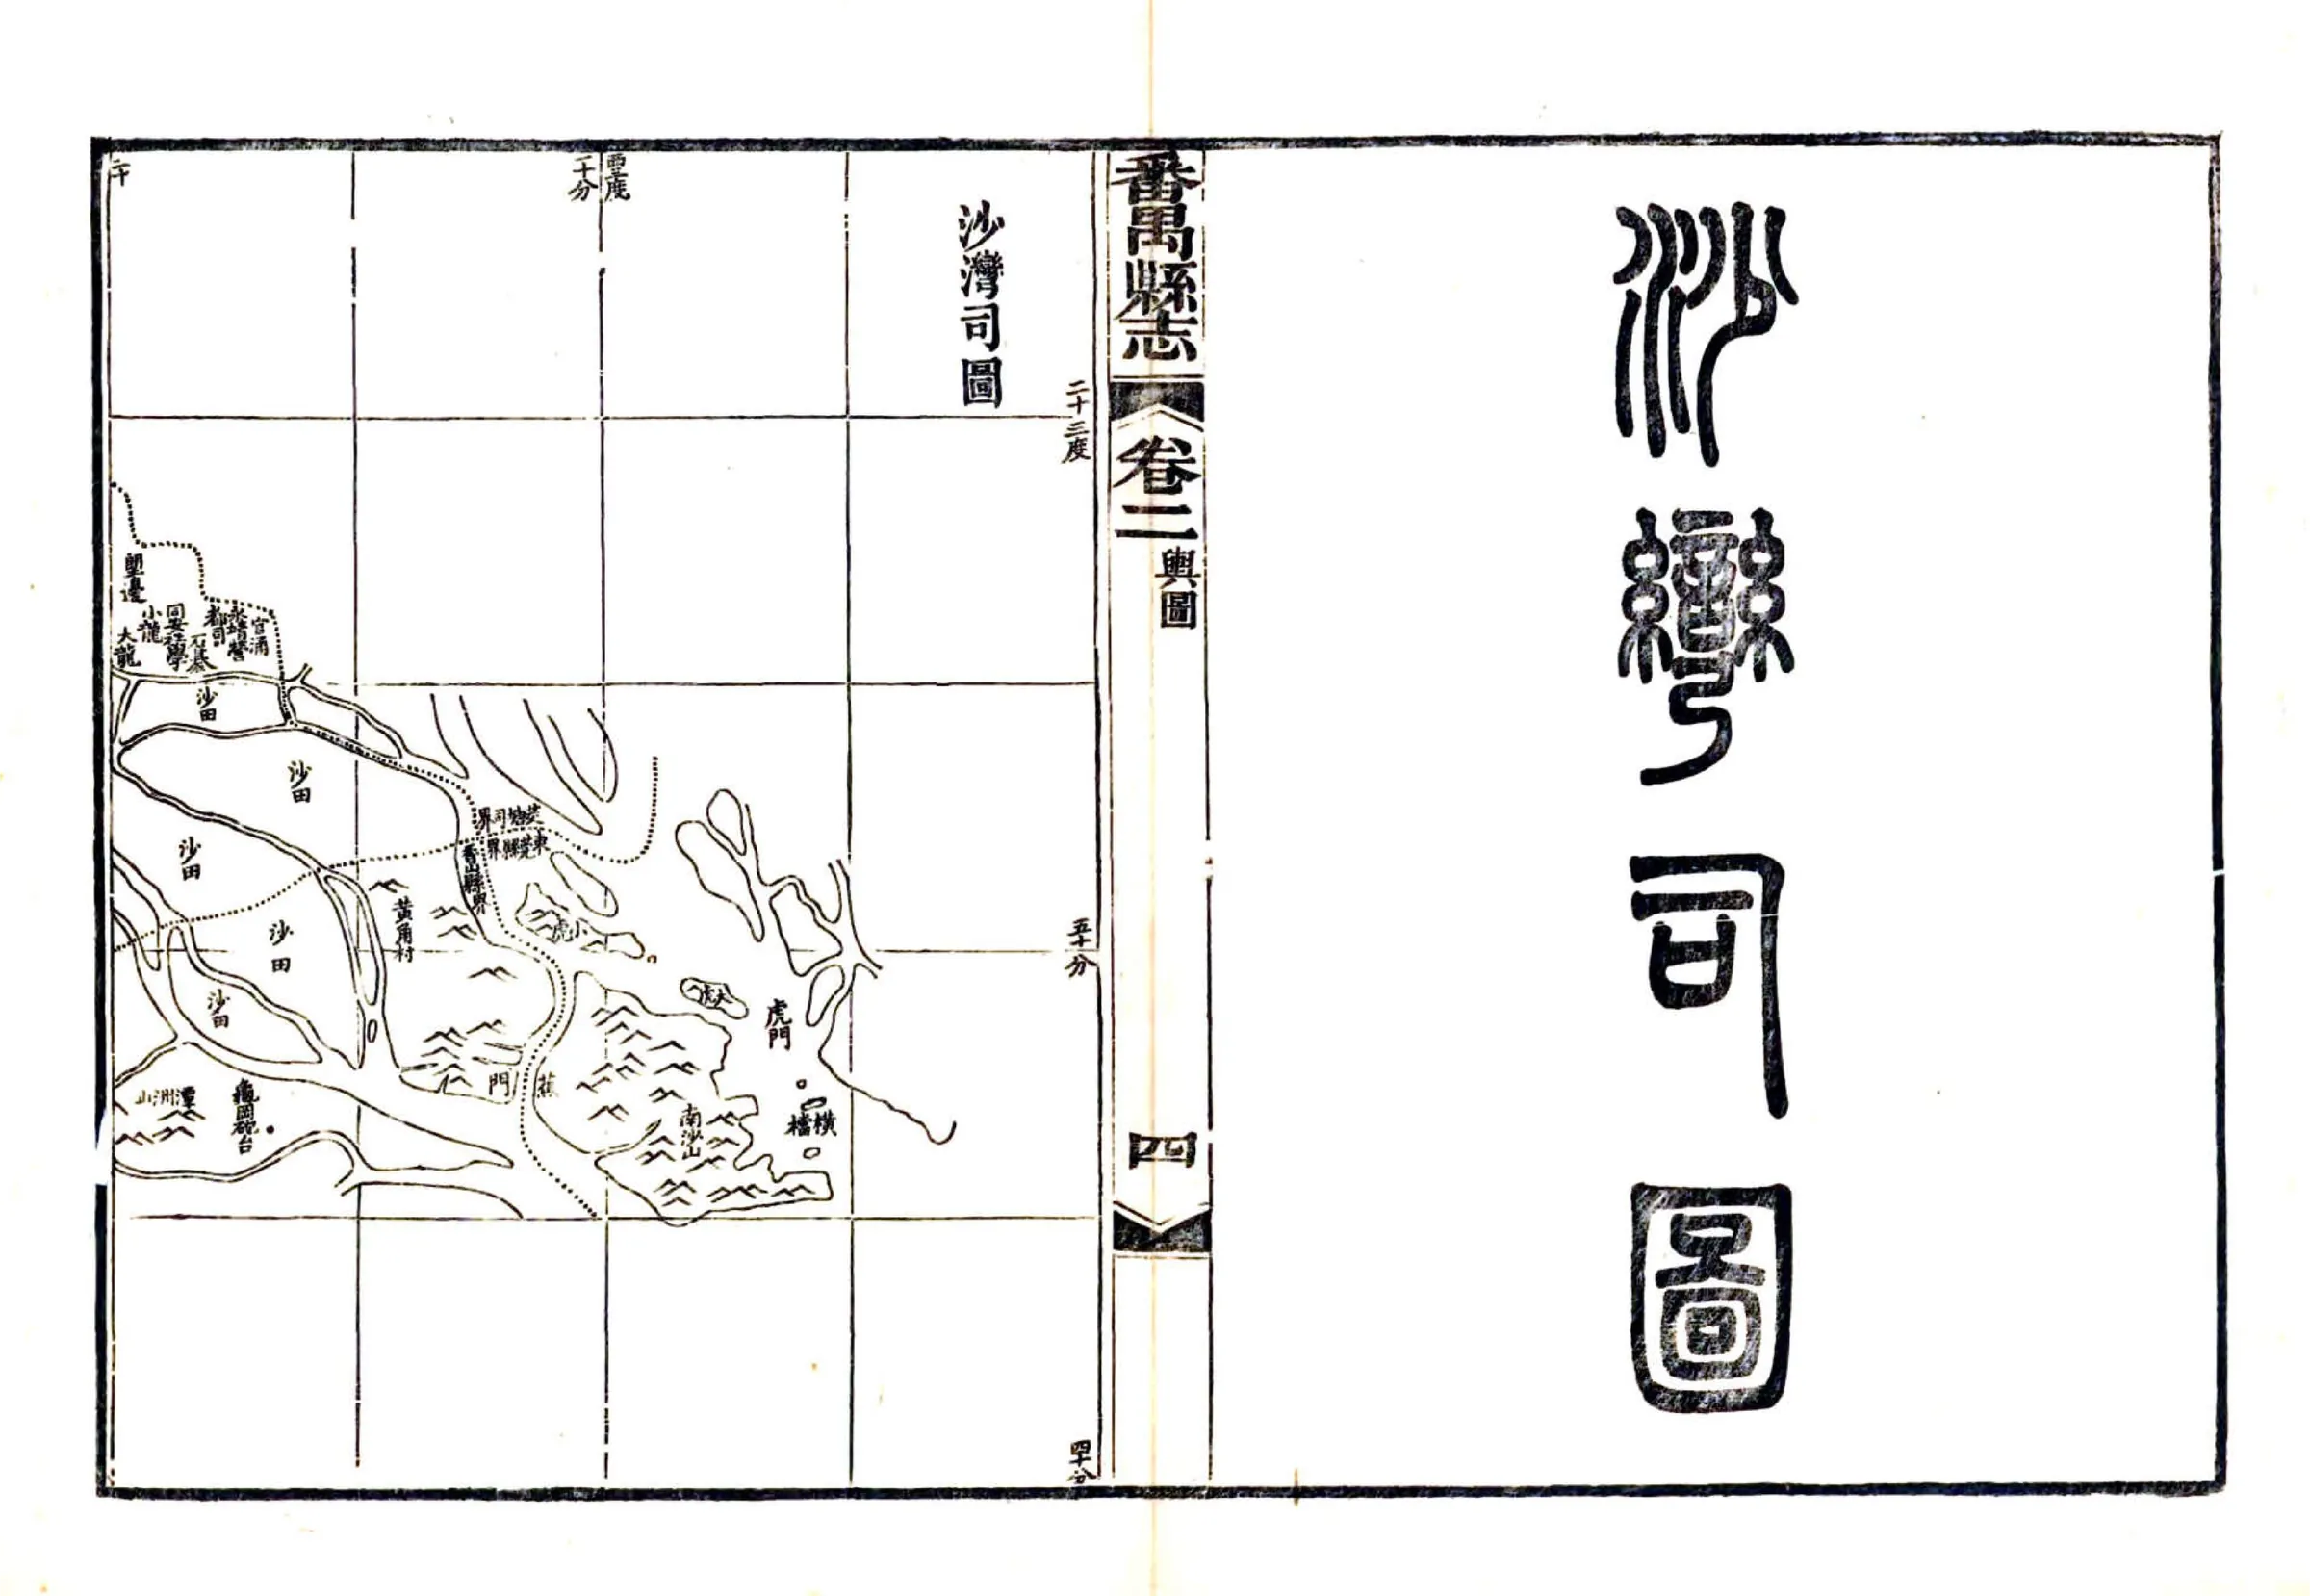 沙灣司圖
番禺縣志
卷二
輿圖
四
沙灣司圖
二十三度
五十分
四十分
西度
二十分
官涌
永靖營
都司
石碁
同安社學
小龍
大龍
塱邊
沙田
沙田
沙田
沙田
沙田
茭塘司界
東莞縣界
香山縣界
黃角村
小虎
大虎
虎門
橫檔
南沙山
蕉門
龜岡砲台
潭洲山